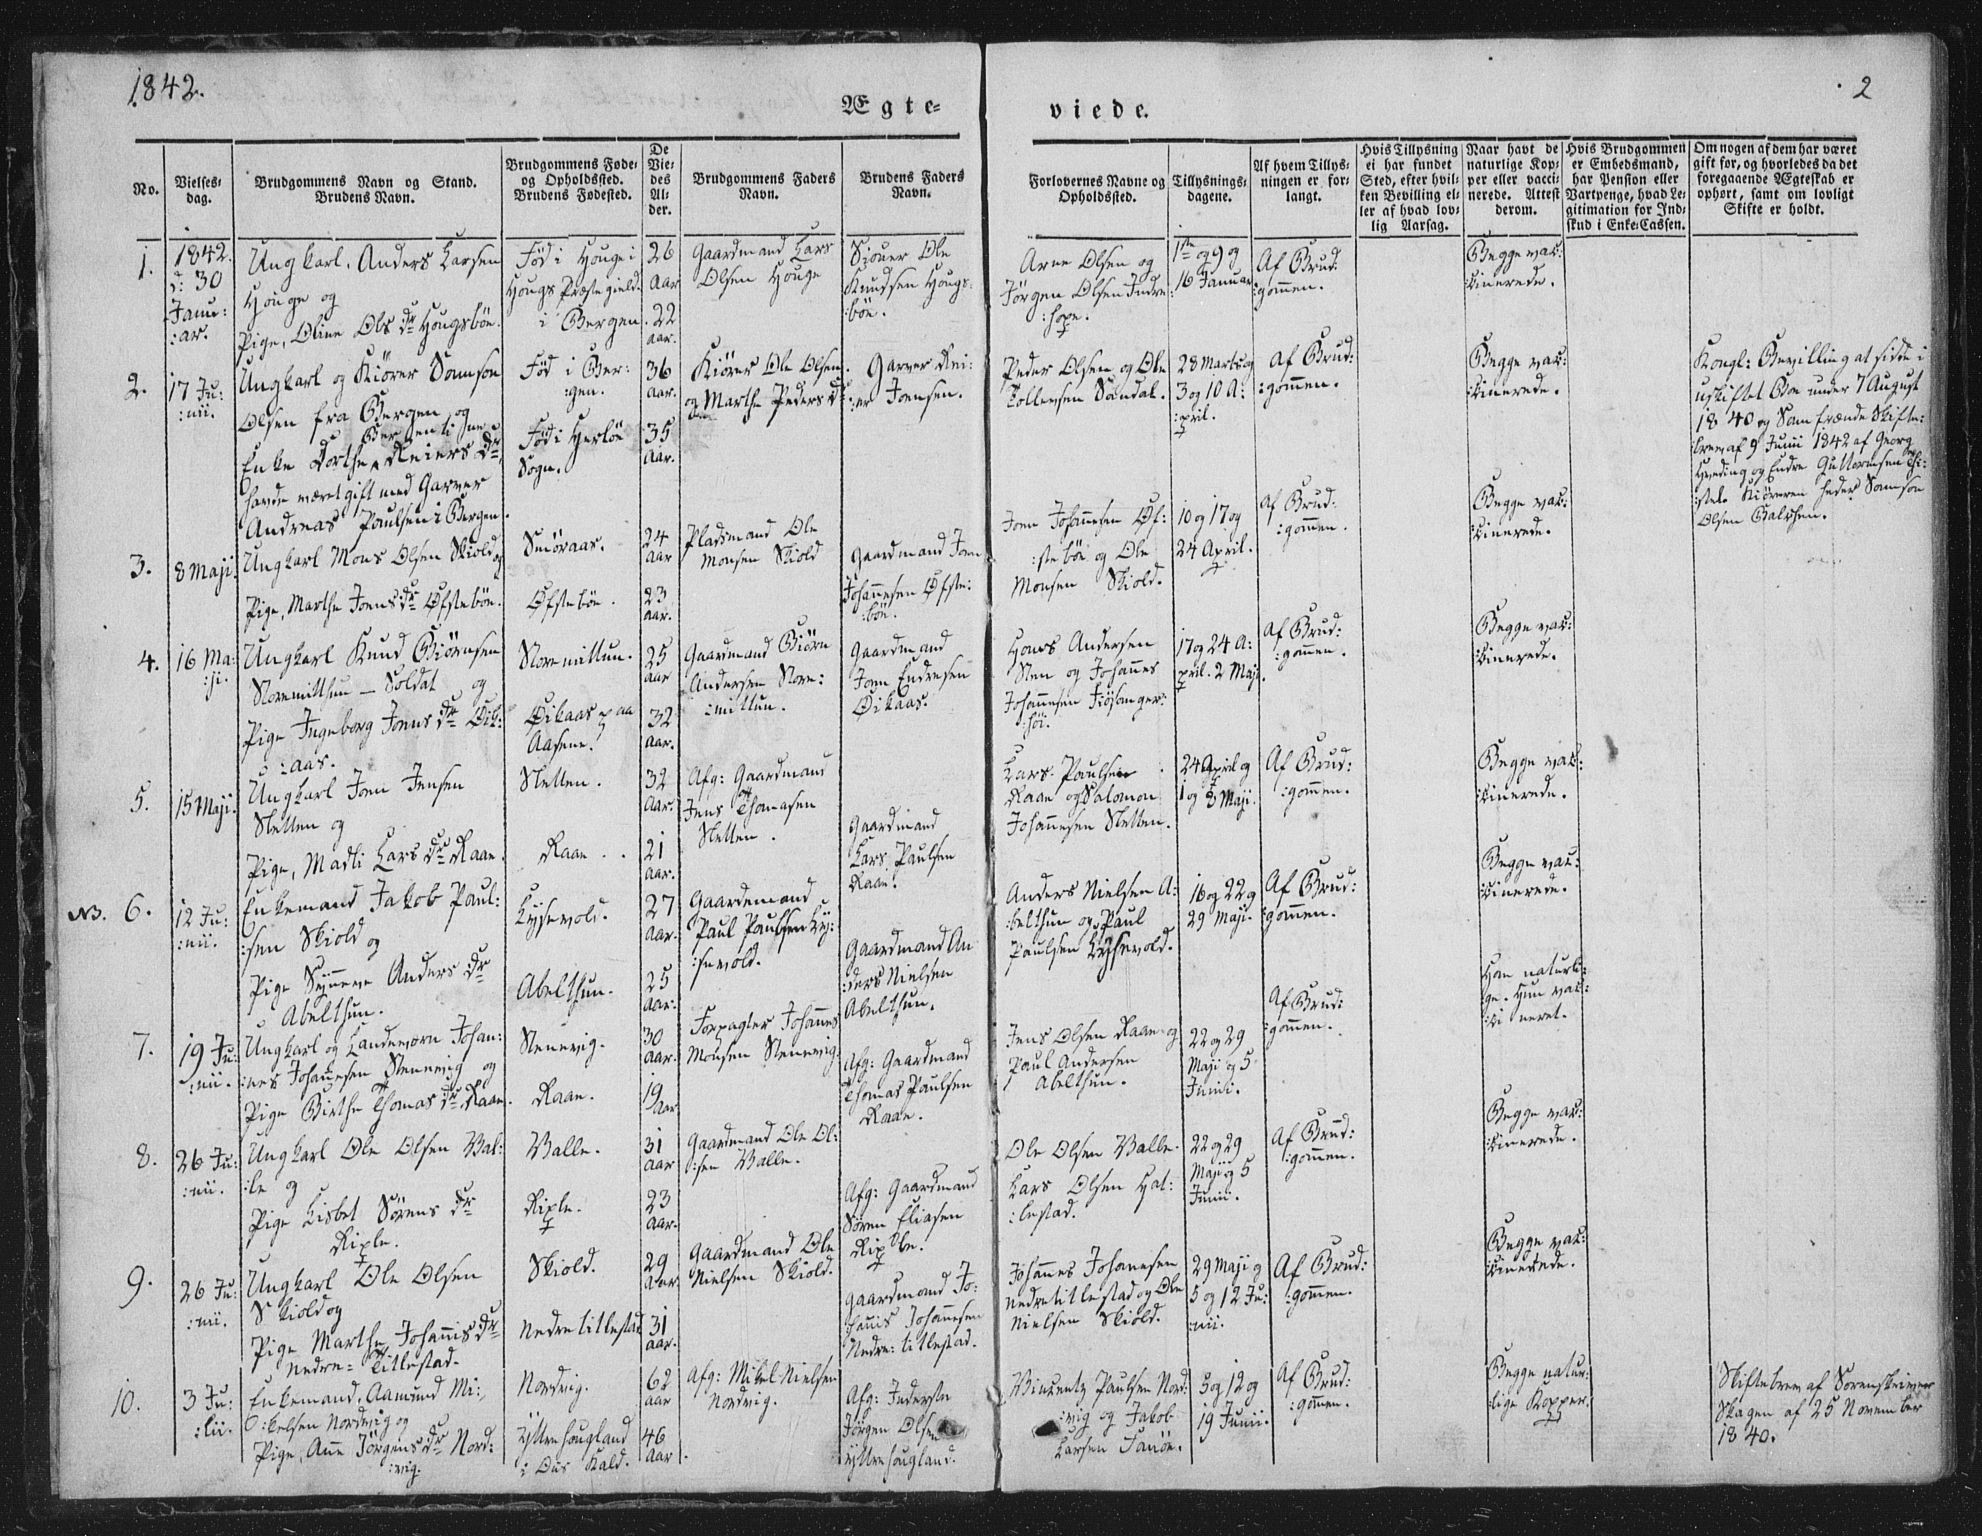 1842.
2
Ægte-
viede.
No.
Vielses-
dag.
Brudgommens Navn og Stand.
Brudens Navn.
Brudgommens Føde-
og Opholdssted.
Brudens Fødested.
De
Vie-
des
Al-
der.
Brudgommens Faders
Navn.
Brudens Faders
Navn.
Forlovernes Navne og
Opholdssted.
Tillysnings-
dagene.
Af hvem Tillys-
ningen er for-
langt.
Hvis Tillysning
ei har fundet
Sted, efter hvil-
ken Bevilling el-
ler af hvad lov-
lig Aarsag.
Naar havt de
naturlige Kop-
per eller vacci-
nerede. Attest
derom.
Hvis Brudgommen
er Embedsmand,
har Pension eller
Vartpenge, hvad Le-
gitimation for Ind-
skud i Enke-Cassen.
Om nogen af dem har været
gift før, og hvorledes da det
foregaaende Ægteskab er
ophørt, samt om lovligt
Skifte er holdt.
1.
1842.
d: 30
Janu:
:ar.
Ungkarl, Anders Larsen
Houge og
Pige, Oline Ols Dr Hougsbøe.
Fød i Houge i
Hougs Præstegield.
i Bergen.
26
Aar
22
Aar.
Gaardmand Lars
Olsen Houge
Siouer Ole
Knudsen Hougs:
:bøe.
Arne Olsen og
Jørgen Olsen Indre
:hope.
1ste og 9 og
16 Januar
Af Brud:
:gommen.
Begge vac:
:cinerede.
2.
17 Ju:
:nii.
Ungkarl og Kiører Samson
Olsen fra Bergen og
Bergen
Enke Dorthe Reiers Dr,
havde været gift med Garver
Andreas Paulsen i Bergen.
Fød i Ber:
:gen.
Fød i Herløe
Sogn.
36
Aar.
35
Aar.
Kiører Ole Olsen
og Marthe Peders Dr
Garver Rei:
:er Joensen.
Peder Olsen og Ole
Tollevsen Sandal.
28 Marts og
3 og 10 A:
:pril.
Af Brud:
:gommen.
Begge vac:
:cinerede.
Kongl: Bevilling at sidde i
uskiftet Boe under 7 August
1840 og Samfrænde Skifte:
:brev af 9 Junii 1842 af Georg
Hveding og Endre Guttormsen
Kiøreren heder Samson
Olsen
3.
8 Maji.
Ungkarl Mons Olsen Skiold og
Pige, Marthe Joens Dr Øfstebøe.
Smøraas.
Øfstebøe.
24
Aar
23
Aar.
Pladsmand Ole
Monsen Skiold
Gaardmand Joen
Johannesen Øfste:
:bøe.
Joen Johannesen Øf:
:stebøe og Ole
Monsen Skiold.
10 og 17 og
24 April.
Af Brud:
:gommen.
Begge vac:
:cinerede.
4.
16 Ma:
:ji.
Ungkarl Knud Biørnsen
Storemitthun - Soldat og
Pige Ingeborg Joens Dr Øik:
:aas.
Storemittun.
Øikaas paa
Aasene.
25
Aar
32
Aar.
Gaardmand Biørn
Andersen Store:
:mittun.
Gaardmand
Joen Endresen
Øikaas.
Hans Andersen
Steen og Johannes
Johannesen Fiøsanger:
:høi.
17 og 24 A:
pril. 2 Maji.
Af Brud:
:gommen.
Begge vac:
:cinerede.
5.
15 Maji.
Ungkarl Joen Jensen
Sletten og
Pige, Madli Lars Dr Raae.
Sletten.
Raae.
32
Aar.
21
Aar.
Afg: Gaardmand
Jens Thomasen
Sletten.
Gaardmand
Lars Paulsen
Raae.
Lars Paulsen
Raae og Salomon
Johannesen Sletten.
24 April og
1 og 8 Maji.
Af Brud:
:gommen.
Begge vac:
:cinerede.
NB. 6.
12 Ju:
:nii.
Enkemand Jakob Paul:
:sen Skiold og
Pige Synneve Anders Dr
Abelthun.
Lyssevold.
Abelthun.
27
Aar.
25
Aar.
Gaardmand
Paul Paulsen Ly:
:sevold.
Gaardmand An
:ders Nielsen
Abelthun.
Anders Nielsen A:
:belthun og Paul
Paulsen Lyssevold.
16 og 22 og
29 Maji.
Af Brud:
:gommen.
Begge vac:
:cinerede.
7.
19 Ju:
:nii.
Ungkarl og Landeværn Johan:
:nes Johannesen Stennevig og
Pige Birthe Thomas Dr Raae.
Stenevig.
Raae.
30
Aar.
19
Aar
Forpagter Johannes
Monsen Stennevig.
Afg: Gaardmand
Thomas Paulsen
Raae.
Jens Olsen Raae og
Paul Andersen
Abelthun.
22 og 29
Maji og 5
Junii.
Af Brud:
:gommen.
Han naturli:
ge. Hun vac:
:cineret.
8.
26 Ju:
:nii.
Ungkarl Ole Olsen Val:
:le og
Pige Lisbet Sørens Dr
Riple.
Valle.
Riple.
31
Aar
23
Aar.
Gaardmand Ole Ol:
:sen Valle.
Afg: Gaardmand
Søren Eliasen
Riple.
Ole Olsen Valle.
Lars Olsen Hat:
:lestad.
22 og 29
Maji og 5
Junii.
Af Brud:
:gommen.
Begge vac:
:cinerede.
9.
26 Ju:
:nii.
Ungkarl Ole Olsen
Skiold og
Pige Marthe Johannis Dr
Nedre-Titlestad.
Skiold.
Nedretitlestad
29
Aar.
31
Aar.
Gaardmand Ole
Nielsen Skiold.
Gaardmand Jo:
hannis Johannesen
Nedre-titlestad.
Johannes Johannesen
Nedretitlestad og Ole
Nielsen Skiold.
29 Maji og
5 og 12 Ju:
:nii.
Af Brud:
:gommen.
Begge vac:
:cinerede.
10.
3 Ju:
:lii.
Enkemand, Aamund Mi:
:kelsen Nordvig og
Pige, Ane Jørgens Dr Nord:
:vig.
Nordvig.
Yttrehougland
i Ous Kald.
62
Aar
46
Aar.
Afg: Mikel Nielsen
Nordvig.
Afg: Inderste
Jørgen Olsen
Yttrehougland.
Vinsents Paulsen Nord:
:vig og Jakob
Larsen Fanøe.
5 og 12 og
19 Junii.
Af Brud:
:gommen.
Begge natur:
lige Kopper.
Skiftebrev af Sorenskriver
Skagen af 25 November
1840.